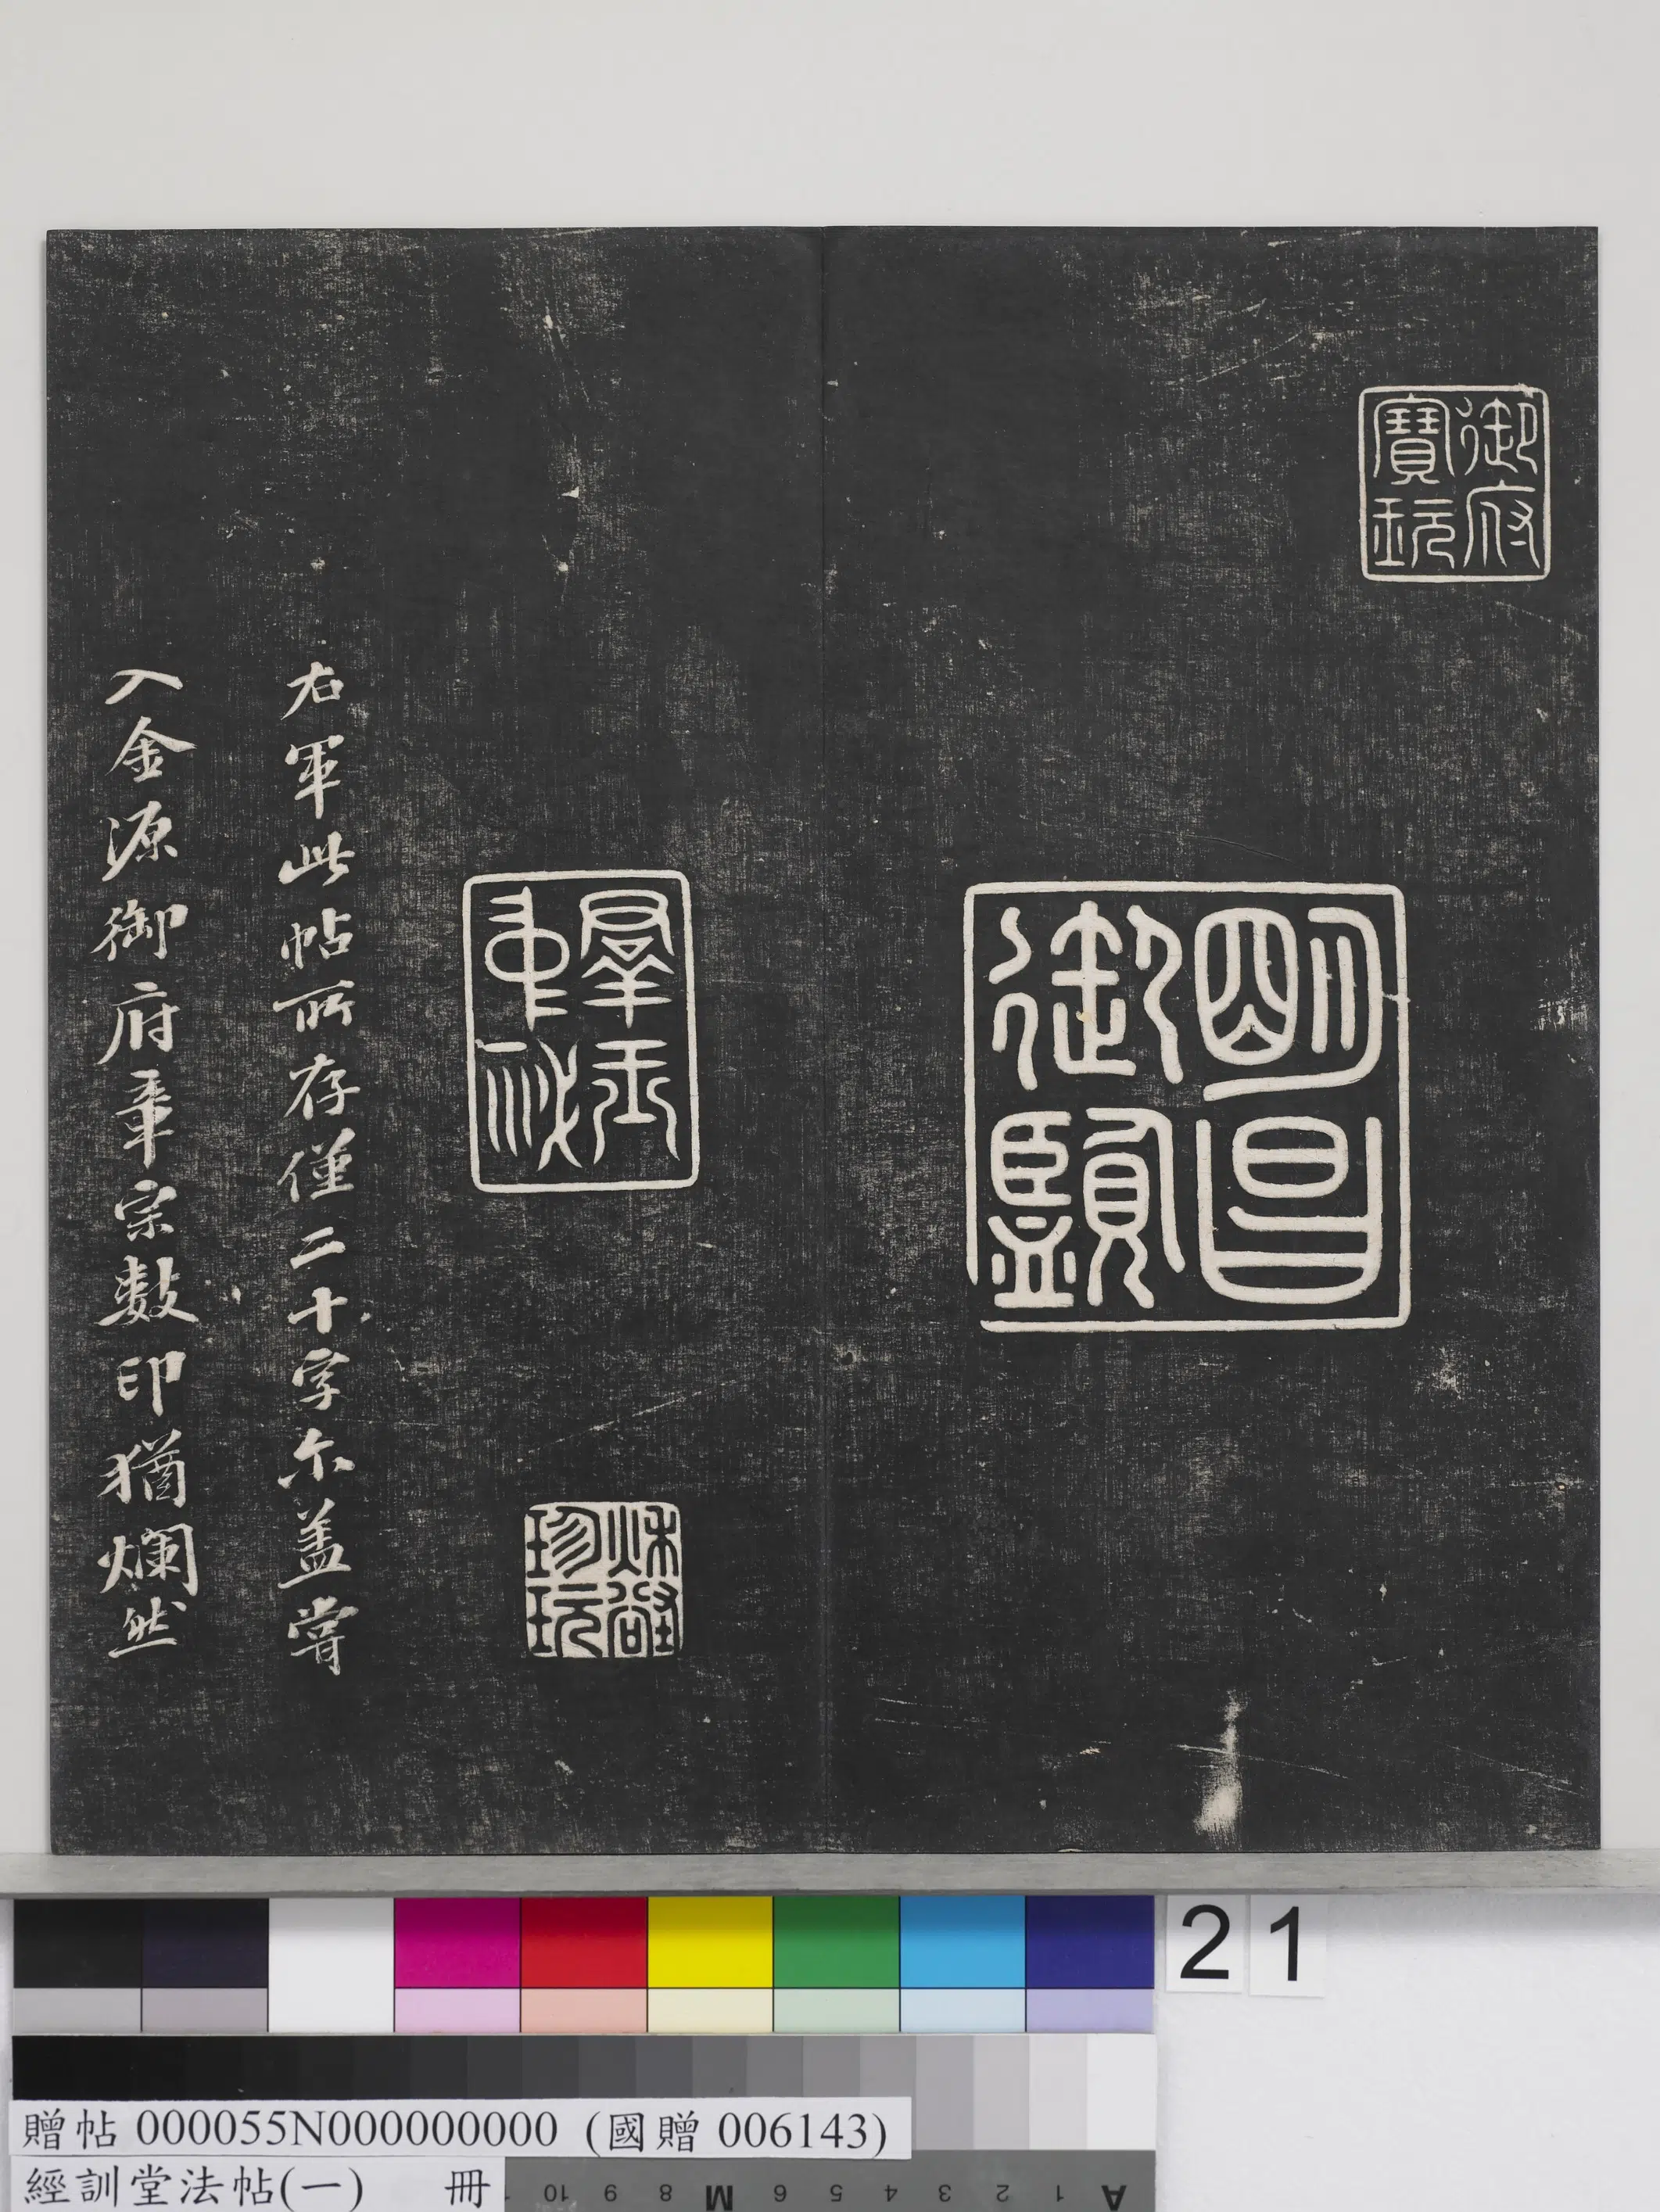 御府
寶玩
明昌
御覽
羣玉
中祕
珍玩
右軍此帖所存僅二十字尔盖嘗
入金源御府章宗數印猶爛然
21
贈帖 000055N000000000 (國贈 006143)
經訓堂法帖(一) 冊
10 9 8 M 6 5 4 3 2 1 A